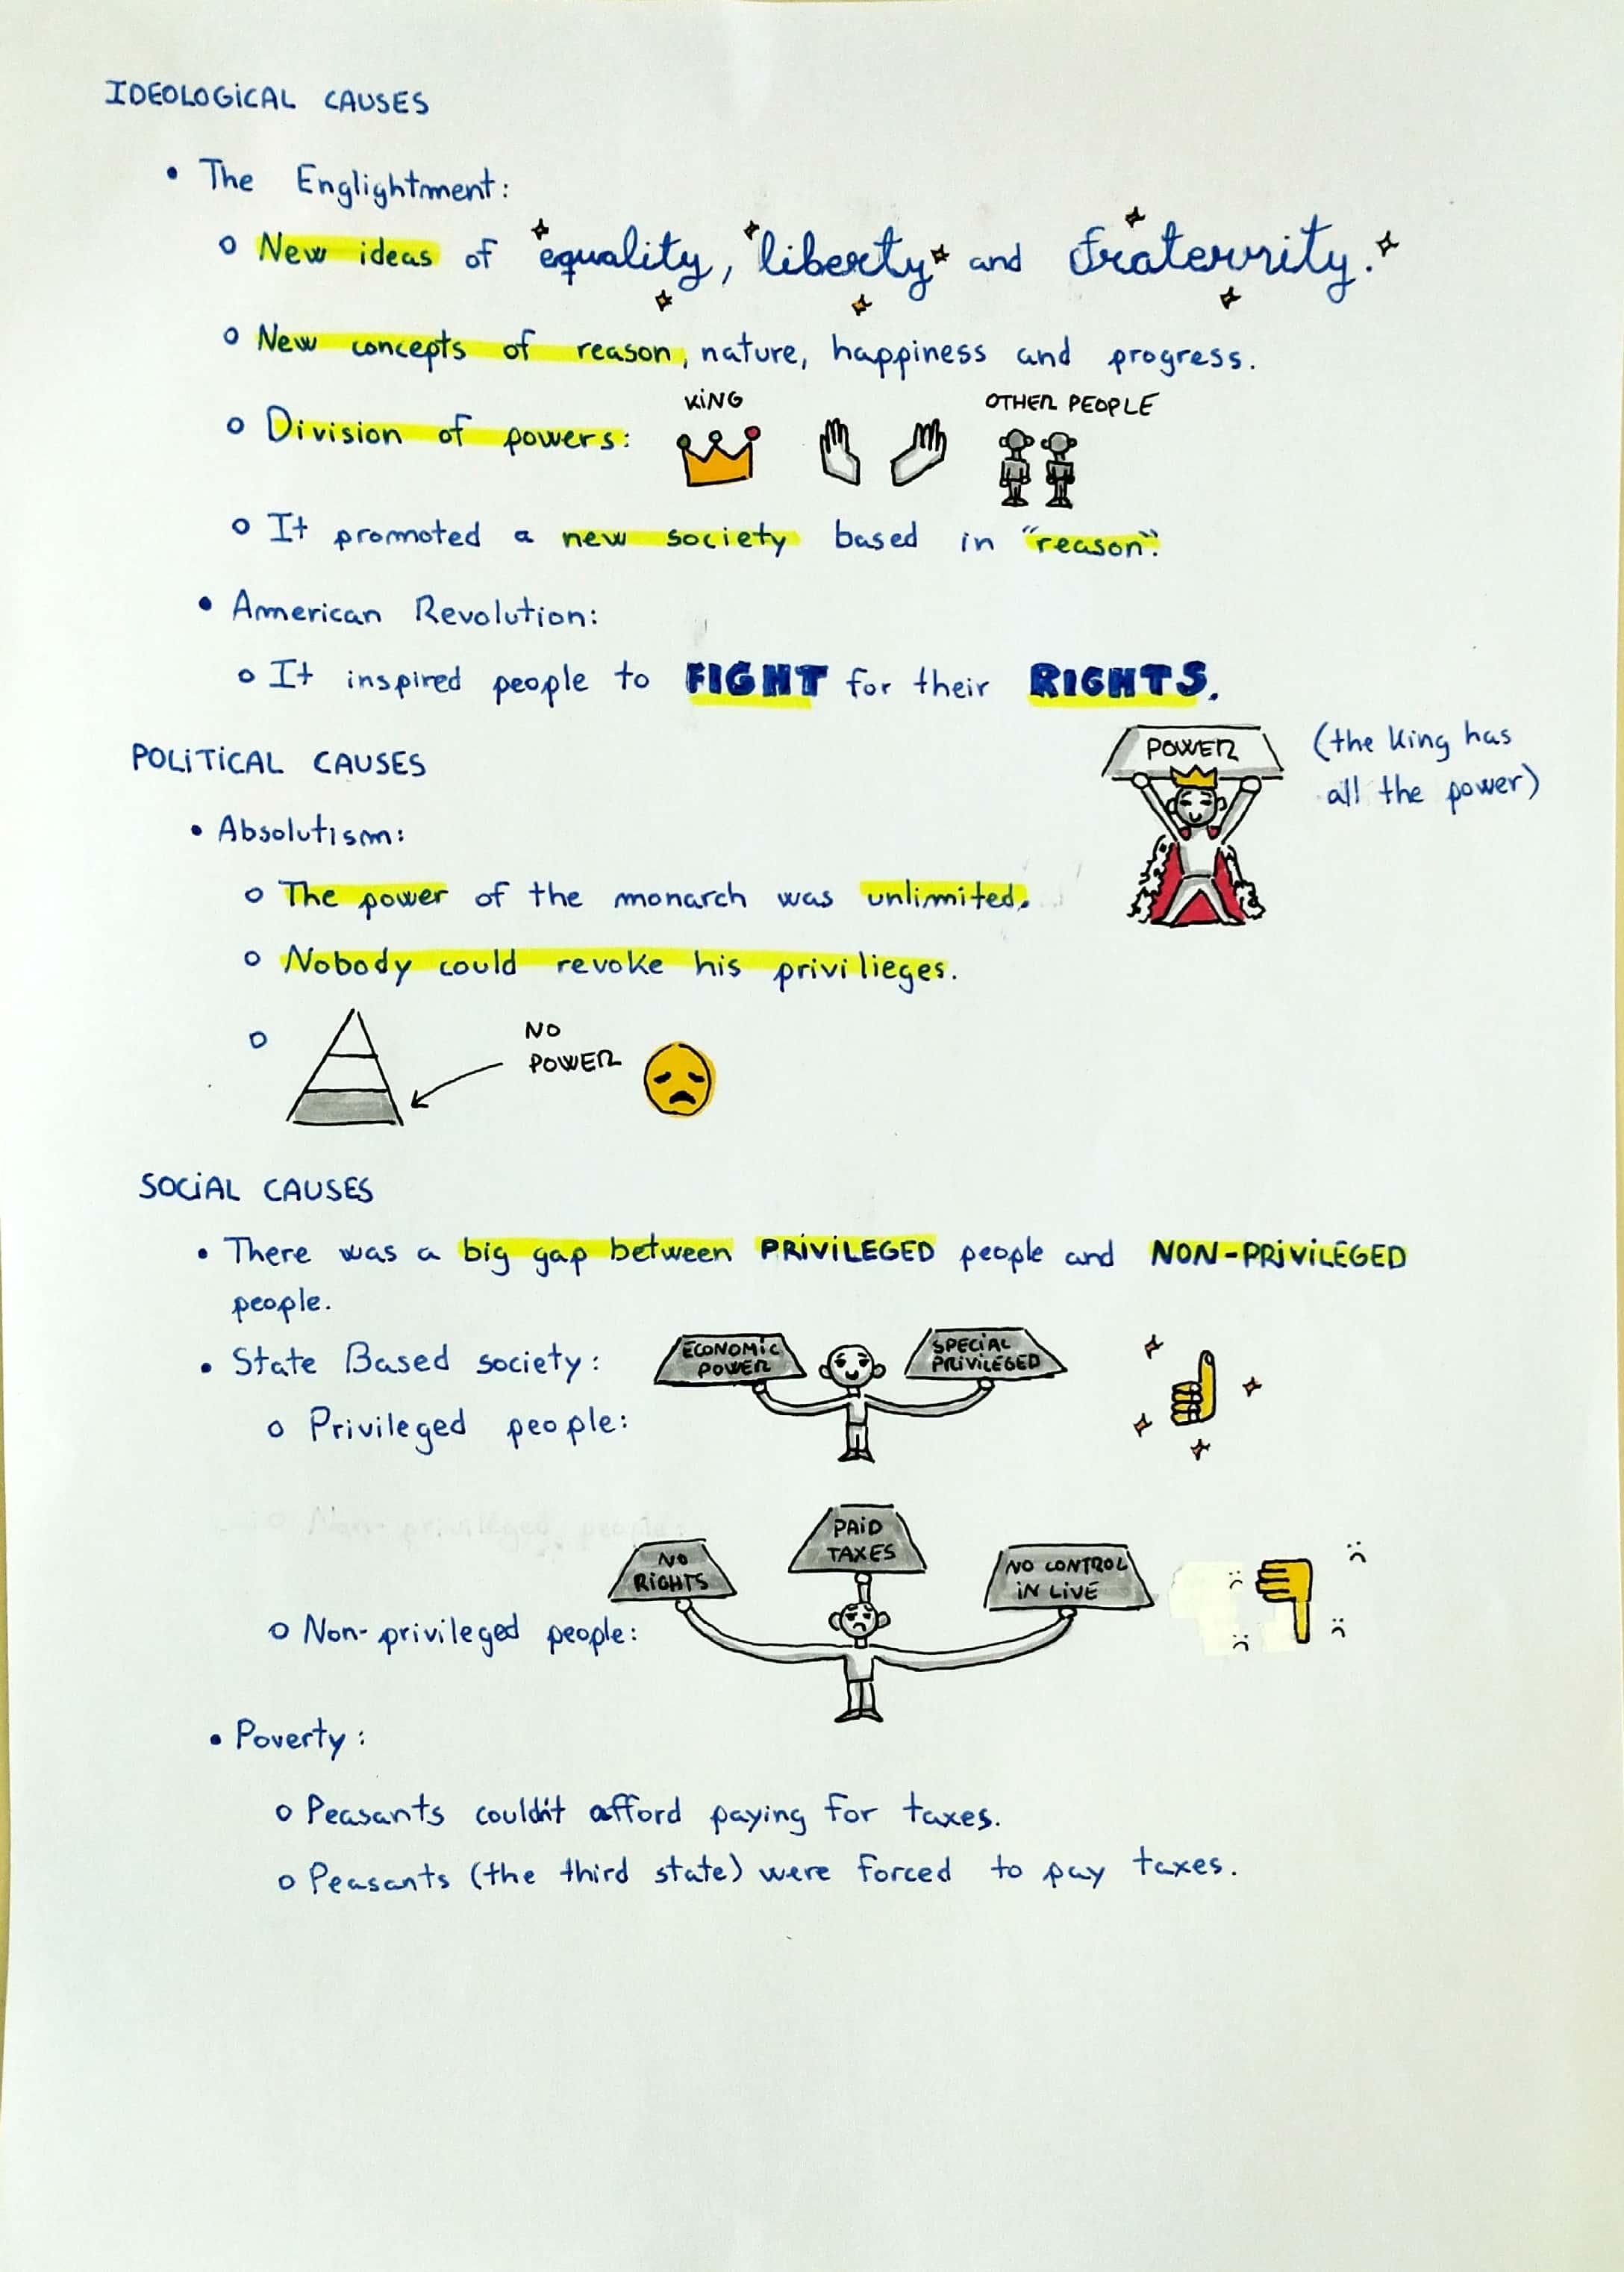 IDEOLOGICAL CAUSES
• The Englightment:
o New ideas of equality, liberty and fraternity.
o New concepts of reason, nature, happiness and progress.
KING
OTHER PEOPLE
o Division of powers:
o It promoted a new society based in "reason".
• American Revolution:
o It inspired people to FIGHT for their RIGHTS.
POWER
(the King has
all the power)
POLITICAL CAUSES
• Absolutism:
o The power of the monarch was unlimited.
o Nobody could revoke his privilieges.
o
NO
POWER
SOCIAL CAUSES
• There was a big gap between PRIVILEGED people and NON-PRIVILEGED
people.
• State Based society:
ECONOMIC
POWER
SPECIAL
PRIVILEGED
o Privileged people:
o Non-privileged people:
NO
RIGHTS
PAID
TAXES
NO CONTROL
IN LIVE
o Non-privileged people:
• Poverty:
o Peasants couldn't afford paying for taxes.
o Peasants (the third state) were forced to pay taxes.